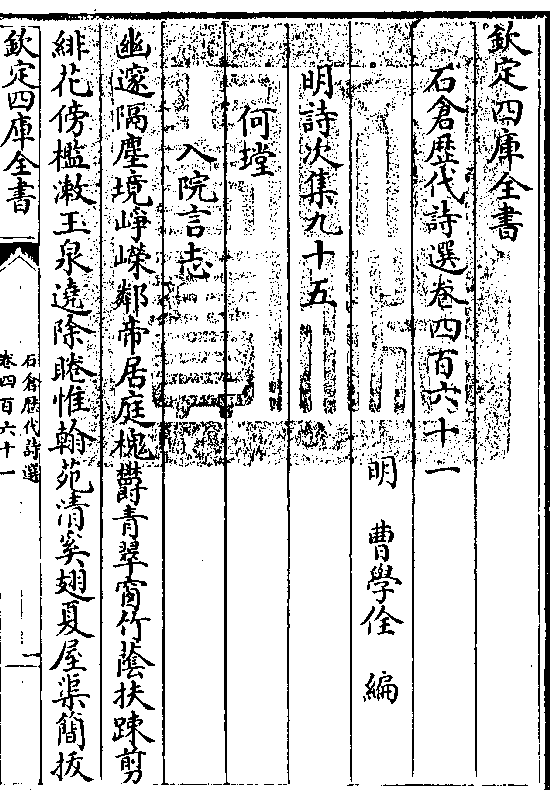 欽定四庫全書
石倉歴代詩選卷四百六十一
明　曹學佺　編
明詩次集九十五
何瑭
入院言志
幽邃隔塵境崢嶸鄰帝居庭槐欝青翠窗竹䕃扶踈剪
緋花傍檻漱玉泉遶除睠惟翰苑清奚翅夏屋渠簡拔
欽定四庫全書
石倉歴代詩選
卷四百六十一
一